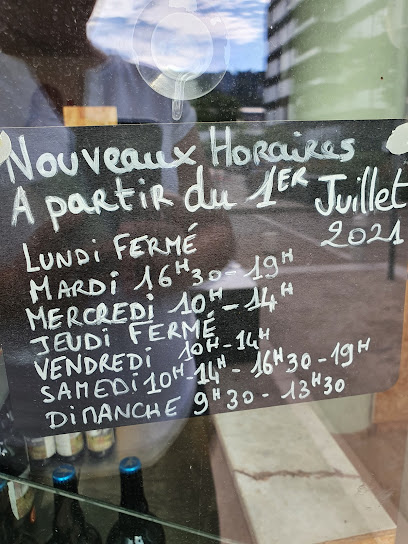 Nouveaux Horaires
A partir du 1ER Juillet
2021
LUNDI FERMÉ
MARDI 16H30-19H
MERCREDI 10H-14H
JEUDI FERMÉ
VENDREDI 10H-14H
SAMEDI 10H-14H-16H30-19H
DIMANCHE 9H30-13H30